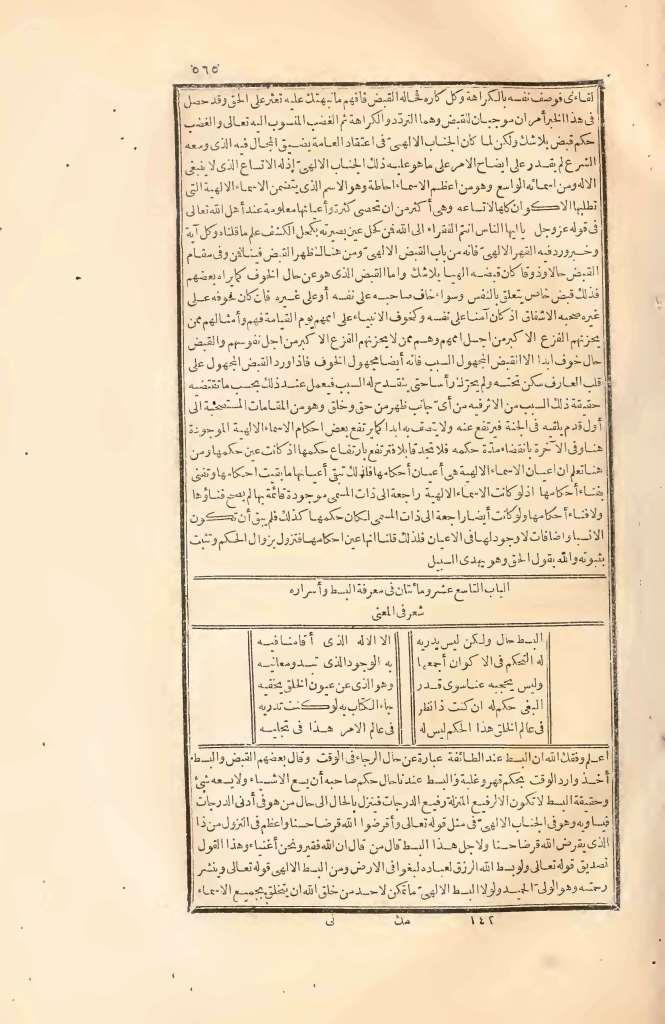 ٥٦٥
لقاءى فوصف نفسه بالكراهة وكل كاره فحاله القبض فافهم ما نبهتك عليه تعثر على الحق وقد حصل
فى هذا الخبر أمران موجبان للقبض وهما التردد والكراهة ثم الغضب المنسوب اليه تعالى والغضب
حكم قبض بلا شك ولكن لما كان الجناب الالهىّ فى اعتقاد العامة يضيق المجال فيه الذى وسعه
الشرع لم يقدر على ايضاح الامر على ما هو عليه ذلك الجناب الالهىّ اذ له الاتساع الذى لا ينبغى
الا له ومن اسمائه الواسع وهو من اعظم الاسماء احاطة وهو الاسم الذى يتضمن الاسماء الالهية التى
تطلبها الاكوان كلها لاتساعه وهى أكثر من ان تحصى كثرة وأعيانها معلومة عند أهل الله تعالى
فى قوله عز وجل يا ايها الناس انتم الفقراء الى الله فمن كحل عين بصيرته بكحل الكشف علم ما قلناه وكل آية
وخبر ورد فيه القهر الالهىّ فانه من باب القبض الالهىّ ومن هنالك ظهر القبض فينا فمن وفى مقام
القبض حالا وذوقا كان قبضه الهيا بلا شك واما القبض الذى هو عن حال الخوف كما يراه بعضهم
فذلك قبض خاص يتعلق بالنفس وسواء خاف صاحبه على نفسه أو على غيره فان كان خوفه على
غيره صحبه الاشفاق اذ كان آمنا على نفسه وكخوف الانبياء على اممهم يوم القيامة فهم وأمثالهم ممن
يحزنهم الفزع الاكبر من اجل اممهم وهم ممن لا يحزنهم الفزع الاكبر من اجل نفوسهم والقبض
حال خوف ابدا الا القبض المجهول السبب فانه أيضا مجهول الخوف فاذا ورد القبض المجهول على
قلب العارف سكن تحته ولم يحرّك رأسا حتى ينقدح له السبب فيعمل عند ذلك بحسب ما تقتضيه
حقيقة ذلك السبب من الاثر فيه من أىّ جانب ظهر من حق وخلق وهو من المقامات المستصحبة الى
أول قدم يلقيه فى الجنة فيرتفع عنه ولا يتصف به ابدا كما يرتفع بعض احكام الاسماء الالهية الموجودة
هنا وفى الآخرة بانقضاء مدّة حكمه فلا تجد قابلا فترتفع بارتفاع حكمها اذ كانت عين حكمها ومن
هنا تعلم ان اعيان الاسماء الالهية هى أعيان أحكامها فانه لذلك تبقى أعيانها ما بقيت احكامها وتفنى
بفناء أحكامها اذ لو كانت الاسماء الالهية راجعة الى ذات المسمى موجودة قائمة بها لم يصح فناؤها
ولا فناء أحكامها ولو كانت أيضا راجعة الى ذات المسمى لكان حكمها كذلك فلم يبق أن تكون
الا نسبا واضافات لا وجود لها فى الاعيان فلذلك قلنا انها عين احكامها فتزول بزوال الحكم وتثبت
بثبوته والله يقول الحق وهو يهدى السبيل
الباب التاسع عشر ومائتان فى معرفة البسط وأسراره
شعر فى المعنى
البسط حال ولكن ليس يدريه الا الاله الذى أقامنا فيه
له التحكم فى الاكوان أجمعها به الوجود الذى تبدو معانيه
وليس يحجبه عنا سوى قدر وهو الذى عن عيون الخلق يخفيه
البغى حكم له ان كنت ذا نظر جاء الكتاب به لو كنت تدريه
فى عالم الخلق هذا الحكم ليس له فى عالم الامر هذا فى تجليه
اعلم وفقك الله ان البسط عند الطائفة عبارة عن حال الرجاء فى الوقت وقال بعضهم القبض والبسط
أخذ وارد الوقت بحكم قهر وغلبة والبسط عندنا حال حكم صاحبه أن يسع الاشياء ولا يسعه شئ
وحقيقة البسط لا تكون الا لرفيع المنزلة رفيع الدرجات فينزل بالحال الى حال من هو فى أدنى الدرجات
فيساويه وهو فى الجناب الالهىّ فى مثل قوله تعالى وأقرضوا الله قرضا حسنا واعظم فى النزول من ذا
الذى يقرض الله قرضا حسنا ولاجل هذا البسط قال من قال ان الله فقير ونحن أغنياء وهذا القول
تصديق قوله تعالى ولو بسط الله الرزق لعباده لبغوا فى الارض ومن البسط الالهى قوله تعالى وينشر
رحمته وهو الولىّ الحميد ولولا البسط الالهىّ ما تمكن لاحد من خلق الله ان يتخلق بجميع الاسماء
١٤٢ مك نى